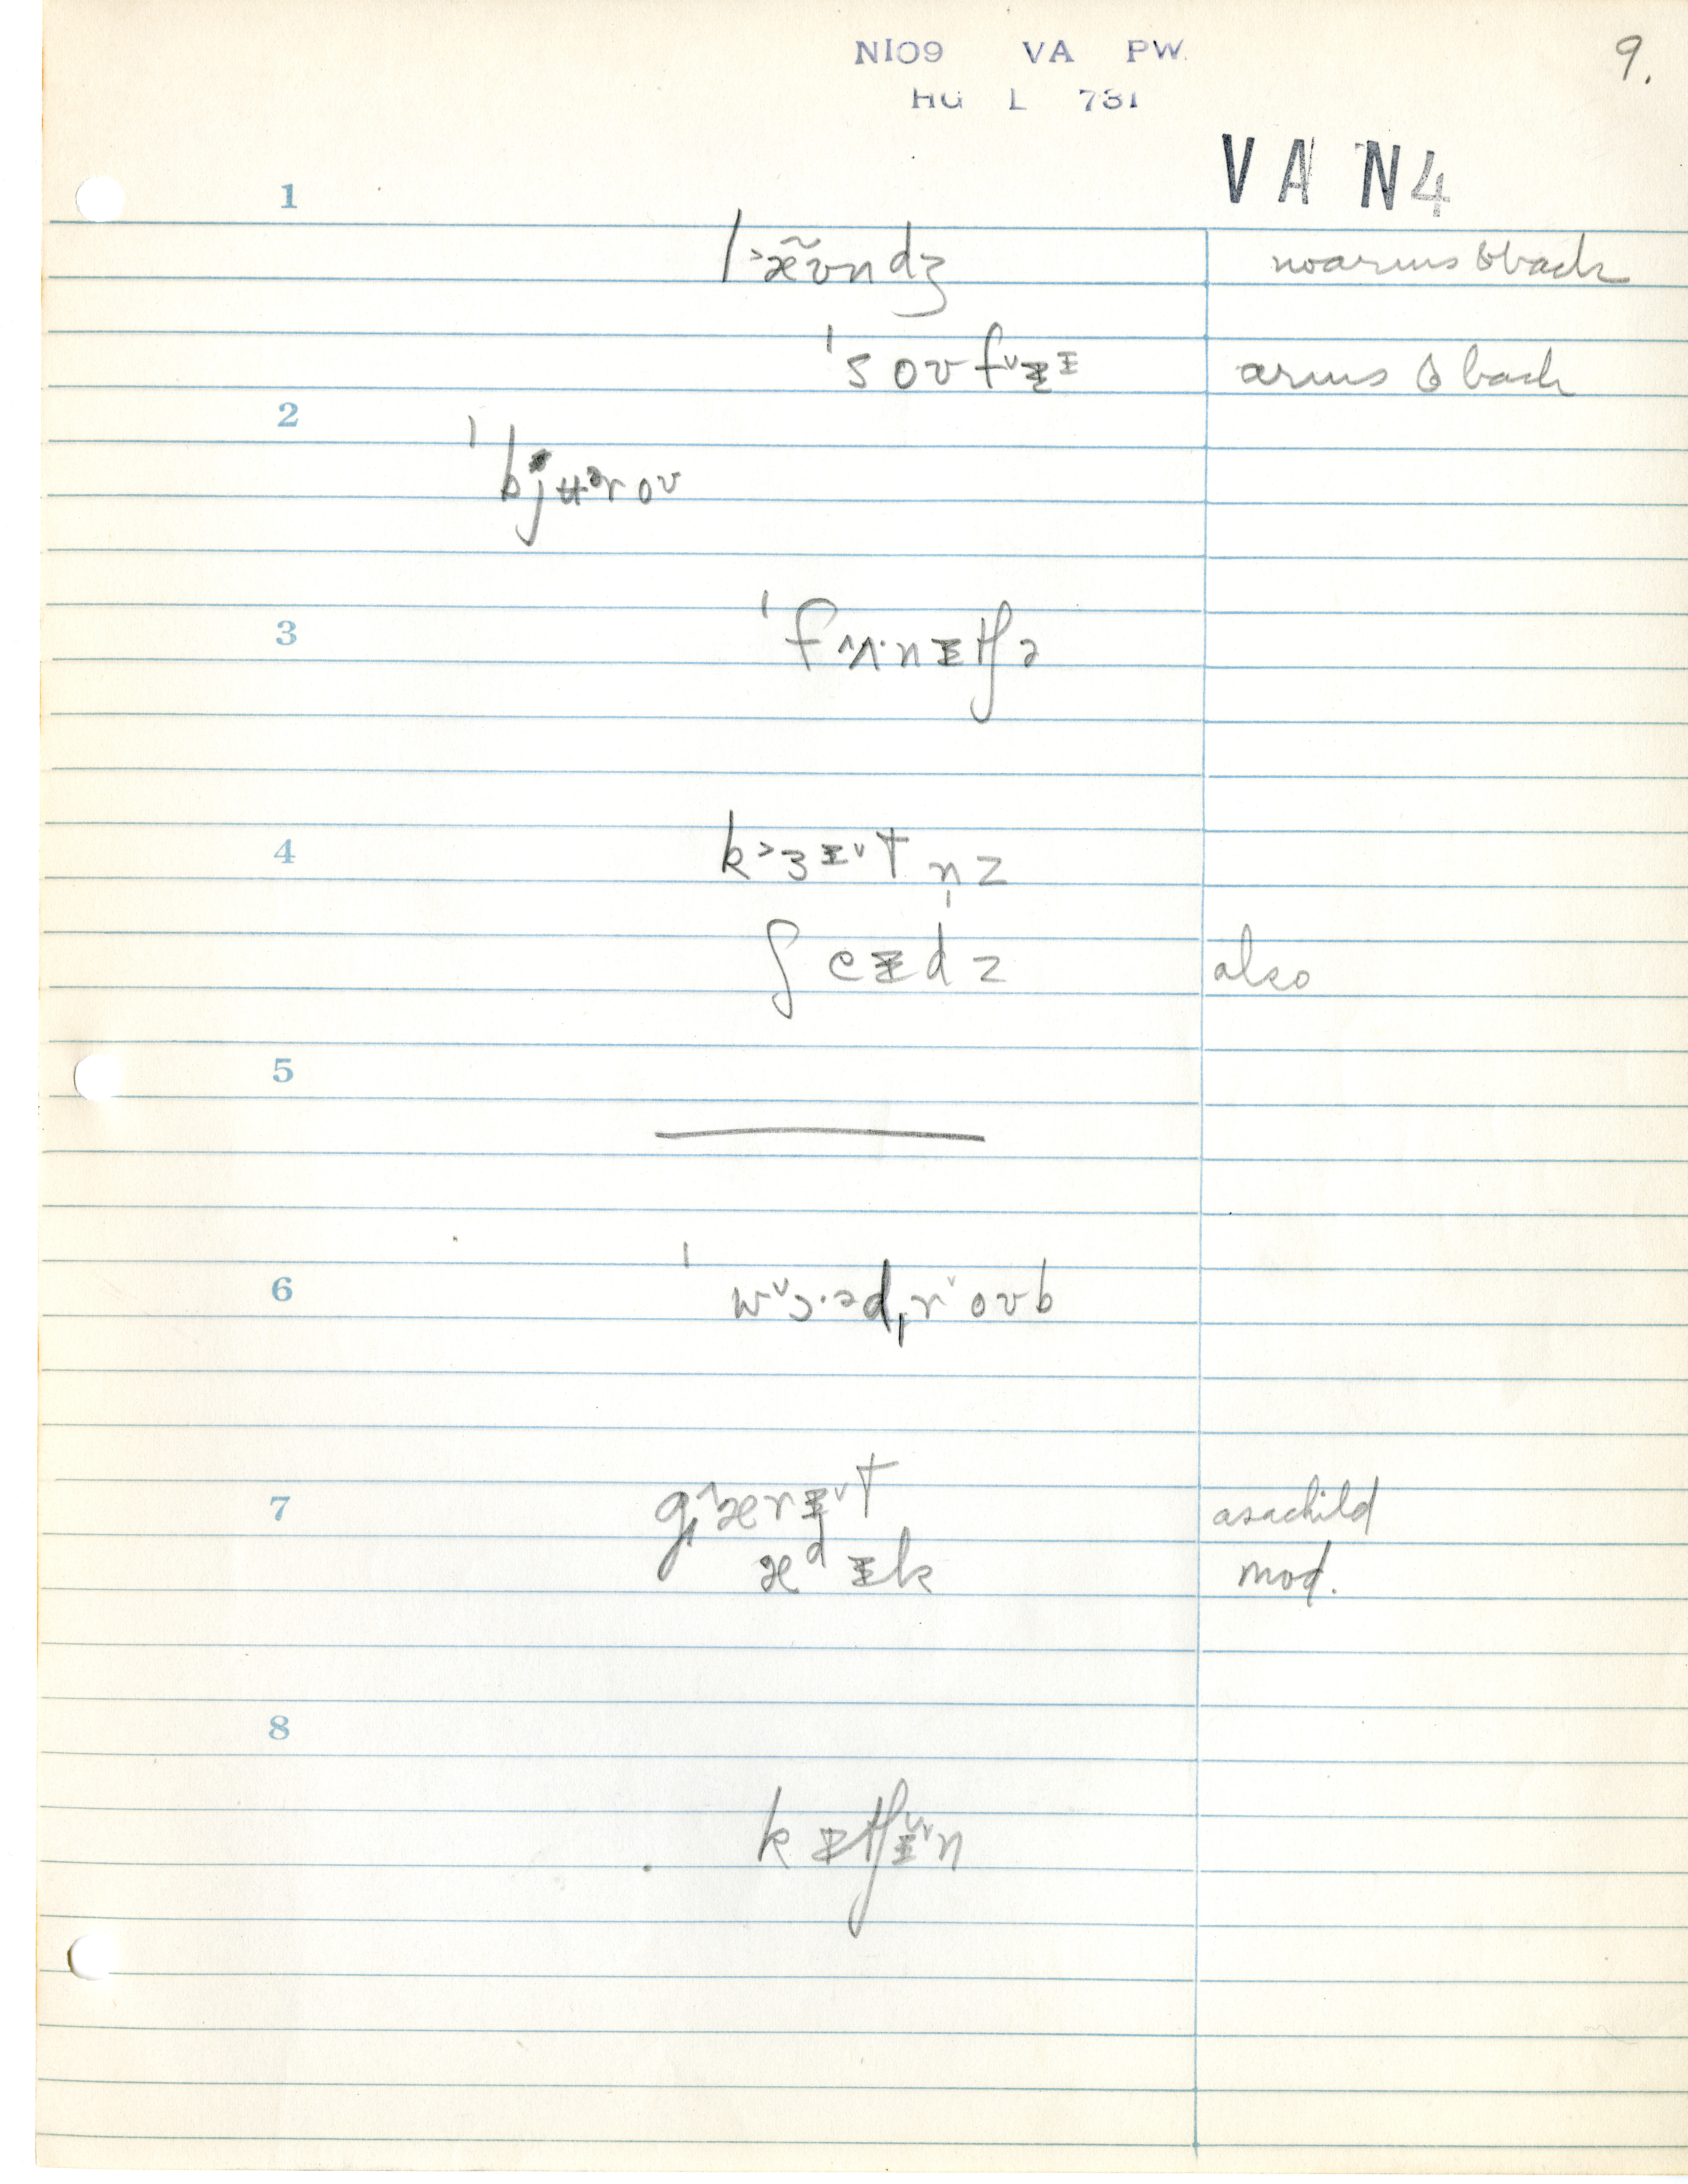 NI09 VA PW.
HG L 731
9.
VA N4
1
l˃æ̃ʊndʒ noarms & back
ˈsoʊfᵛᵻᵻ arms & back
2
ˈbjʉᵊroʊ
3
ˈfʌ^·nᵻtʃə
4
k˃ɜᵻᵛtn̩z
ʃeᵻdz also
5
6
ˈwᵛɔ·ᵊdˌrᵛoʊb
7
g^ærᵻᵛt asachild
ædᵻk mod.
8
kᵻtʃᵻᵛn